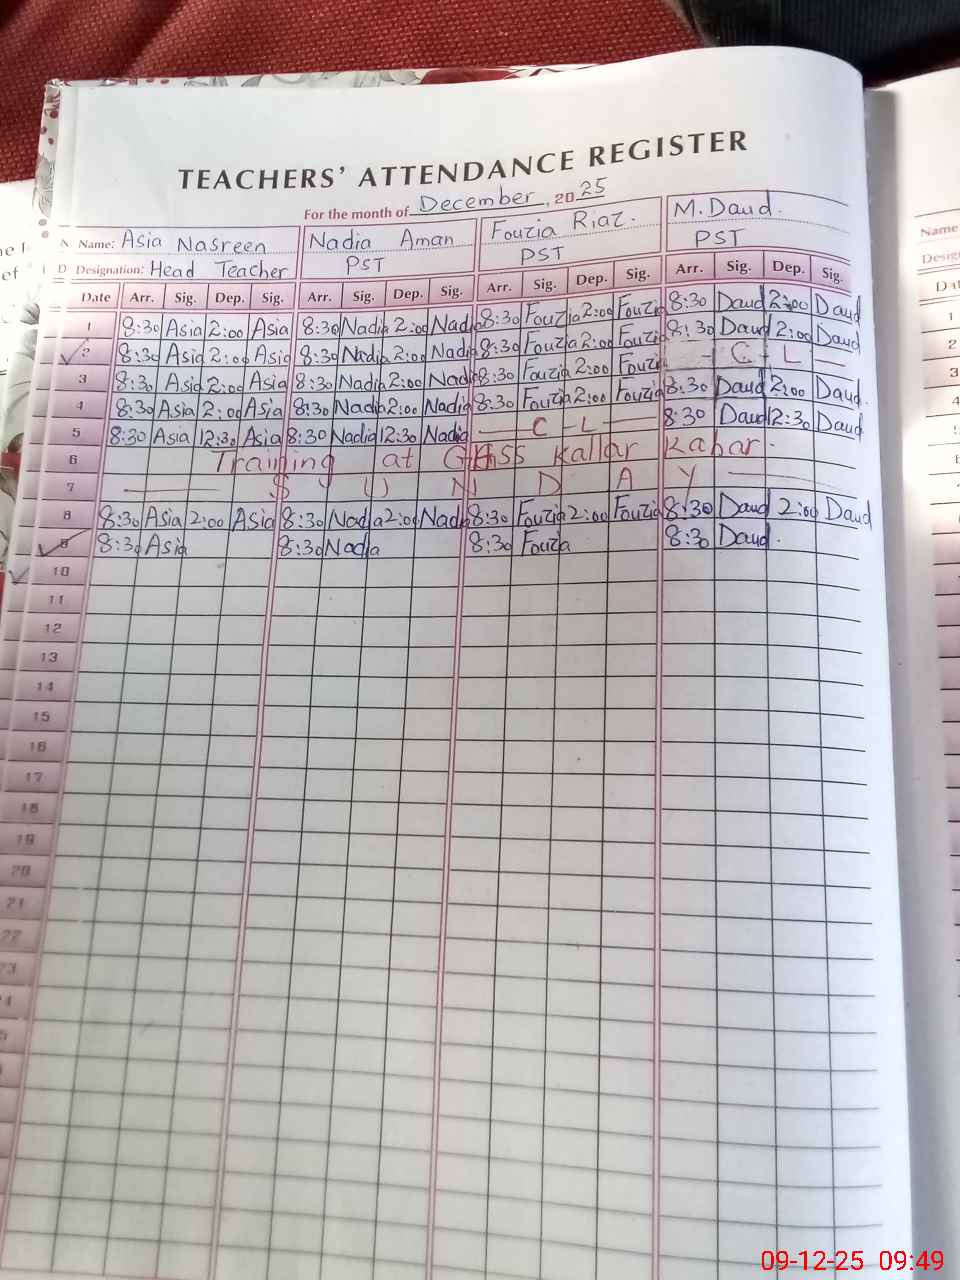 TEACHERS' ATTENDANCE REGISTER
For the month of December, 2025
Name: Asia Nasreen Nadia Aman Fouzia Riaz. M. Daud.
Designation: Head Teacher PST PST PST
Date Arr. Sig. Dep. Sig. Arr. Sig. Dep. Sig. Arr. Sig. Dep. Sig. Arr. Sig. Dep. Sig.
1 8:30 Asia 2:00 Asia 8:30 Nadia 2:00 Nadia 8:30 Fouzia 2:00 Fouzia 8:30 Daud 2:00 Daud
2 8:30 Asia 2:00 Asia 8:30 Nadia 2:00 Nadia 8:30 Fouzia 2:00 Fouzia 8:30 Daud 2:00 Daud
3 8:30 Asia 2:00 Asia 8:30 Nadia 2:00 Nadia 8:30 Fouzia 2:00 Fouzia - C - L -
4 8:30 Asia 2:00 Asia 8:30 Nadia 2:00 Nadia 8:30 Fouzia 2:00 Fouzia 8:30 Daud 2:00 Daud.
5 8:30 Asia 12:30 Asia 8:30 Nadia 12:30 Nadia - C - L - 8:30 Daud 12:30 Daud
6 Training at GHSS Kallar Kahar.
7 S U N D A Y
8 8:30 Asia 2:00 Asia 8:30 Nadia 2:00 Nadia 8:30 Fouzia 2:00 Fouzia 8:30 Daud 2:00 Daud
9 8:30 Asia 8:30 Nadia 8:30 Fouzia 8:30 Daud.
10
11
12
13
14
15
16
17
18
19
20
21
22
23
Name
Desig
Da
1
2
3
4
5
6
7
8
9
10
11
12
13
14
15
09-12-25 09:49